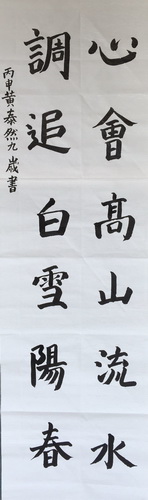 心會高山流水
調追白雪陽春
丙申黃泰然九歲書